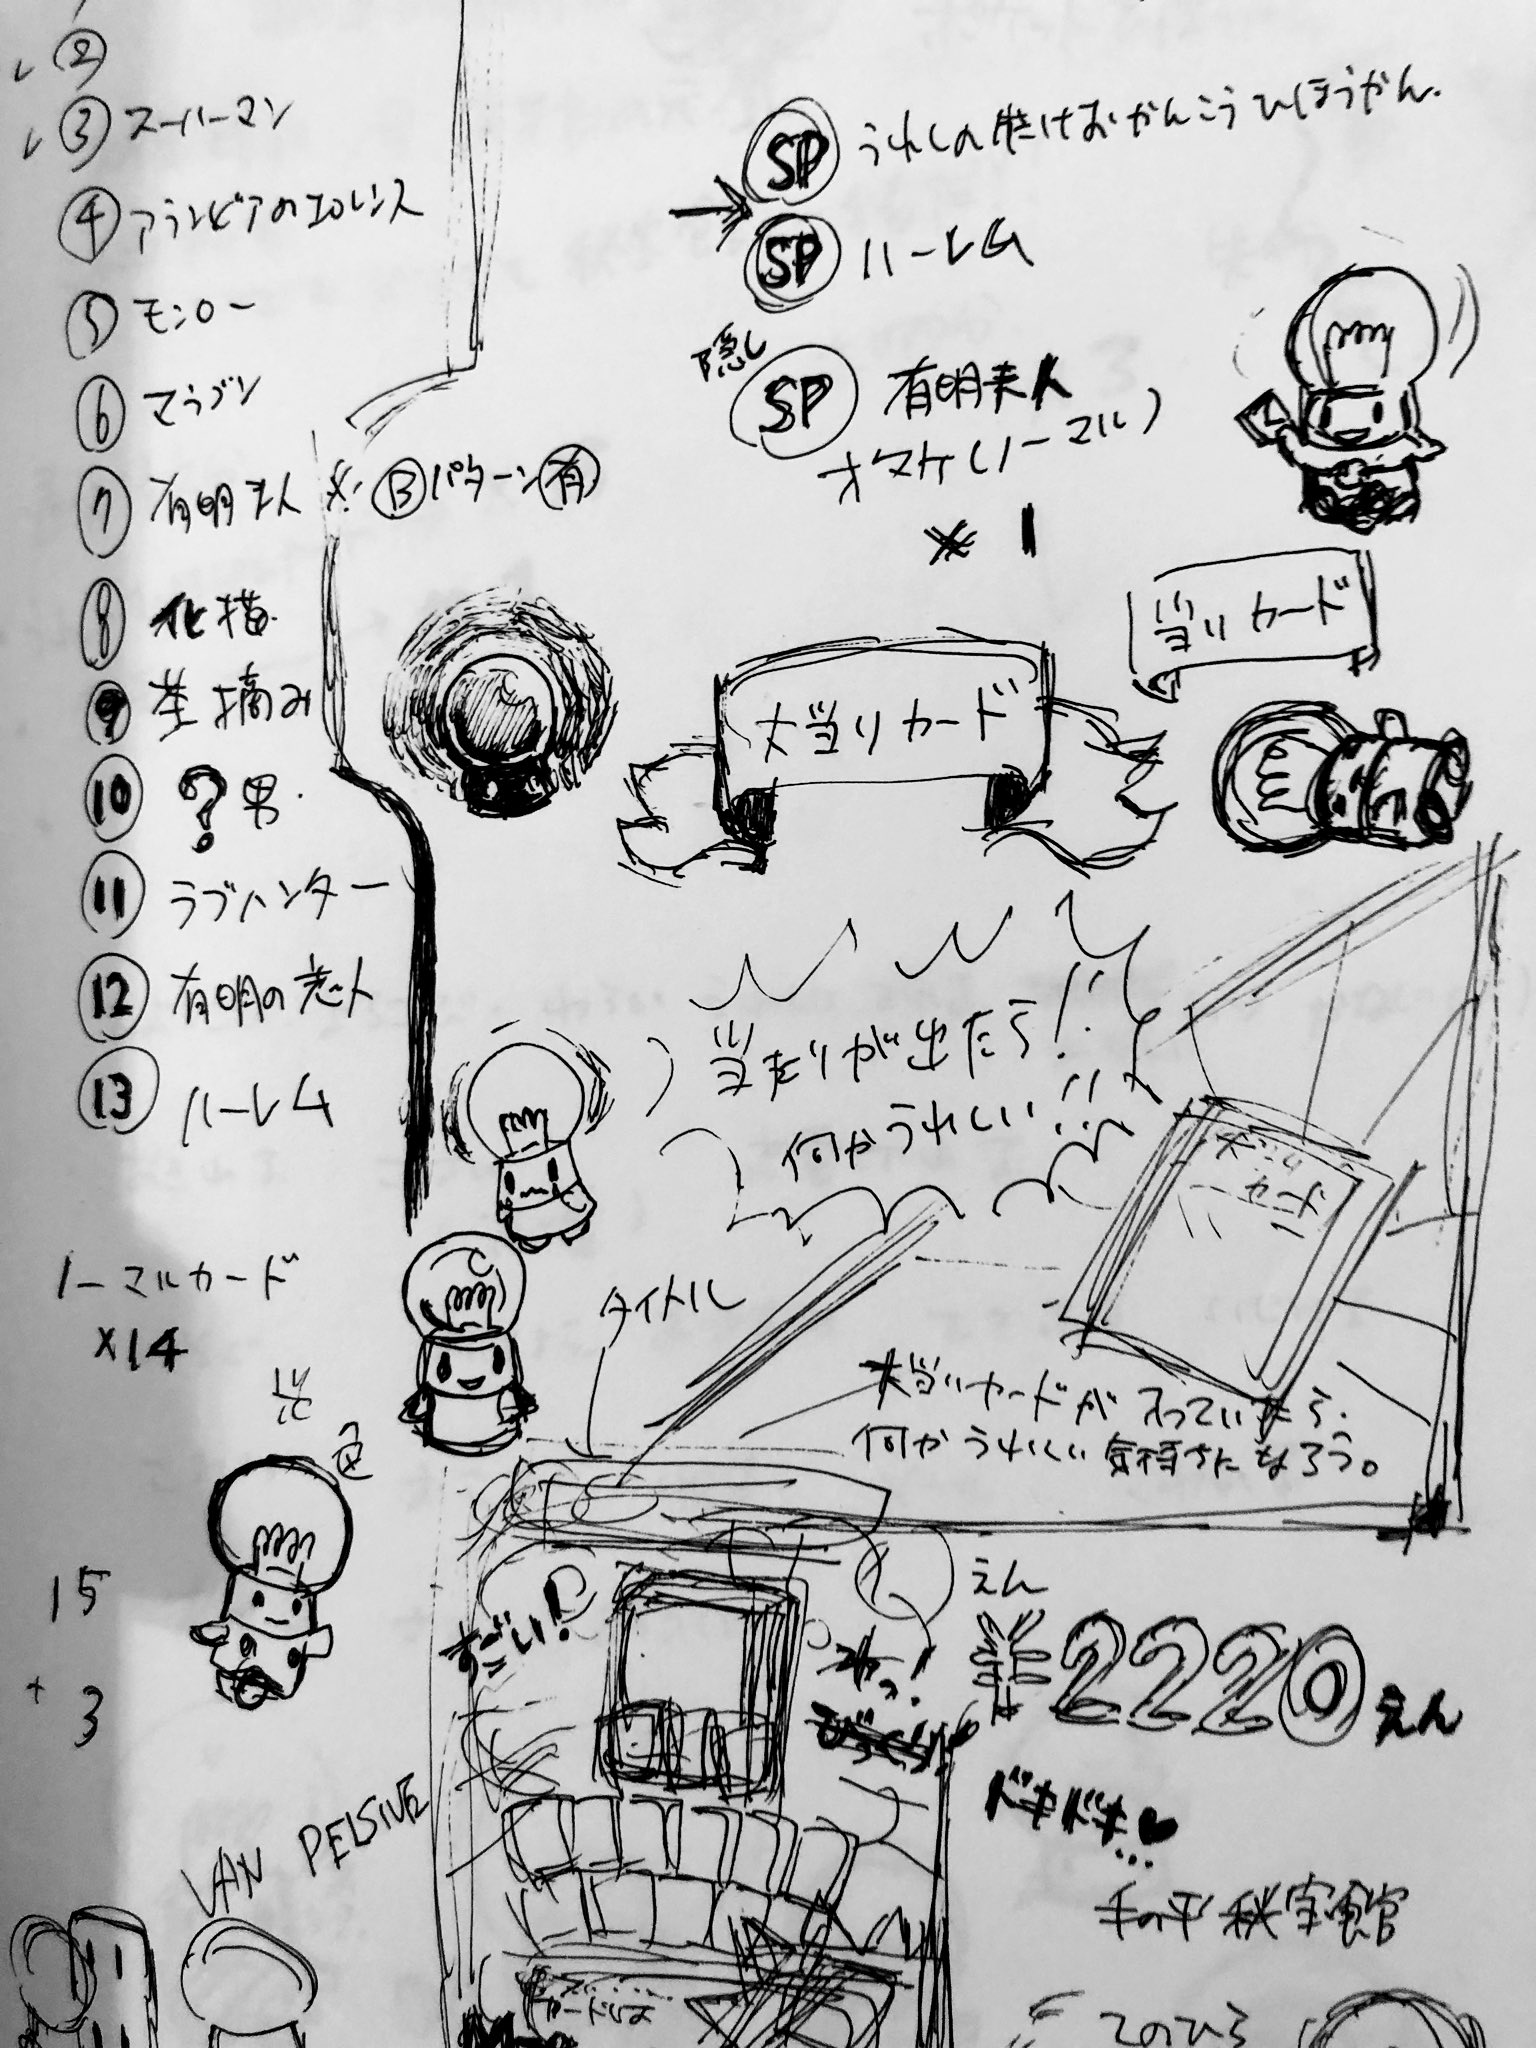 ②
③ スーパーマン
④ アラビアのエロレンス
⑤ モンロー
⑥ マラソン
⑦ 有明夫人 ※ Ⓑパターン㊒
⑧ 化猫
⑨ 茎摘み
⑩ ?男
⑪ ラブハンター
⑫ 有明の老人
⑬ ハーレム
ノーマルカード
×14
15
+ 3
VAN PELSIVE
SP うれしの
かんこうひほうかん.
SP ハーレム
隠し
SP 有明夫人
オマケ(ノーマル)
※ 1
当りカード
大当りカード
当たりが出たら!!
何かうれしい!!
カード
大当りカードが入っていたら.
何かうれしい気持ちになろう。
タイトル
すごい!
わっ!
えん
¥2220えん
ドキドキ♥
手の平秘宝館
カードは
てのひら